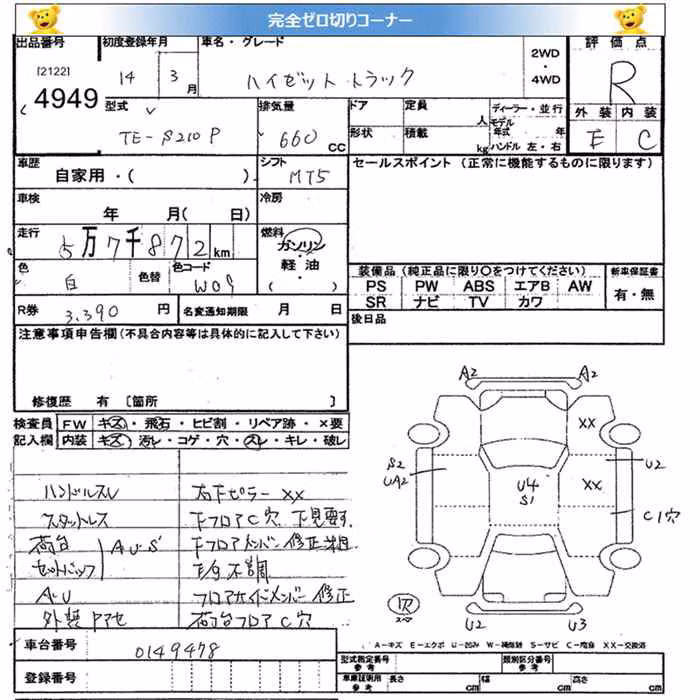 完全ゼロ切りコーナー
出品番号 初度登録年月 車名・グレード 2WD・4WD 評価点
[2122] 4949 14 3月 ハイゼットトラック R
型式 排気量 ドア 定員 人 ディーラー・並行 外装 内装
TE-S210P 660cc 形状 積載 kg モデル年式 年 ハンドル 左・右 E C
車歴 シフト セールスポイント (正常に機能するものに限ります)
自家用・( ) MT5
車検 冷房
年 月( 日)
走行 燃料
5万7千872km ガソリン・軽油
( )
色 色替 色コード 装備品 (純正品に限り○をつけてください) 新車保証書
白 W09 PS PW ABS エアB AW 有・無
SR ナビ TV カワ
R券 3,390円 名変通知期限 月 日 後日品
注意事項申告欄 (不具合内容等は具体的に記入して下さい)
修復歴 有 [箇所 ]
検査員 FW キズ・飛石・ヒビ割・リペア跡・×要
記入欄 内装 キズ・汚レ・コゲ・穴・スレ・キレ・破レ
A2 A2
XX
S2 UA2 U4 S1 XX U2
C1穴
ハンドルスレ 右下ピラーXX
スタットレス 下フロアC穴 下見要す
荷台 AUS 下フロアメンバー修正
セットバック 不調
AU フロアサイドメンバー修正
外装 荷台フロアC穴
U2 U3
A-キズ E-エクボ U-凹み W-補修跡 S-サビ C-腐食 XX-交換済
車台番号 0149478 型式指定番号 参考 類別区分番号 参考
登録番号 車庫証明用 参考 長さ cm 幅 cm 高さ cm